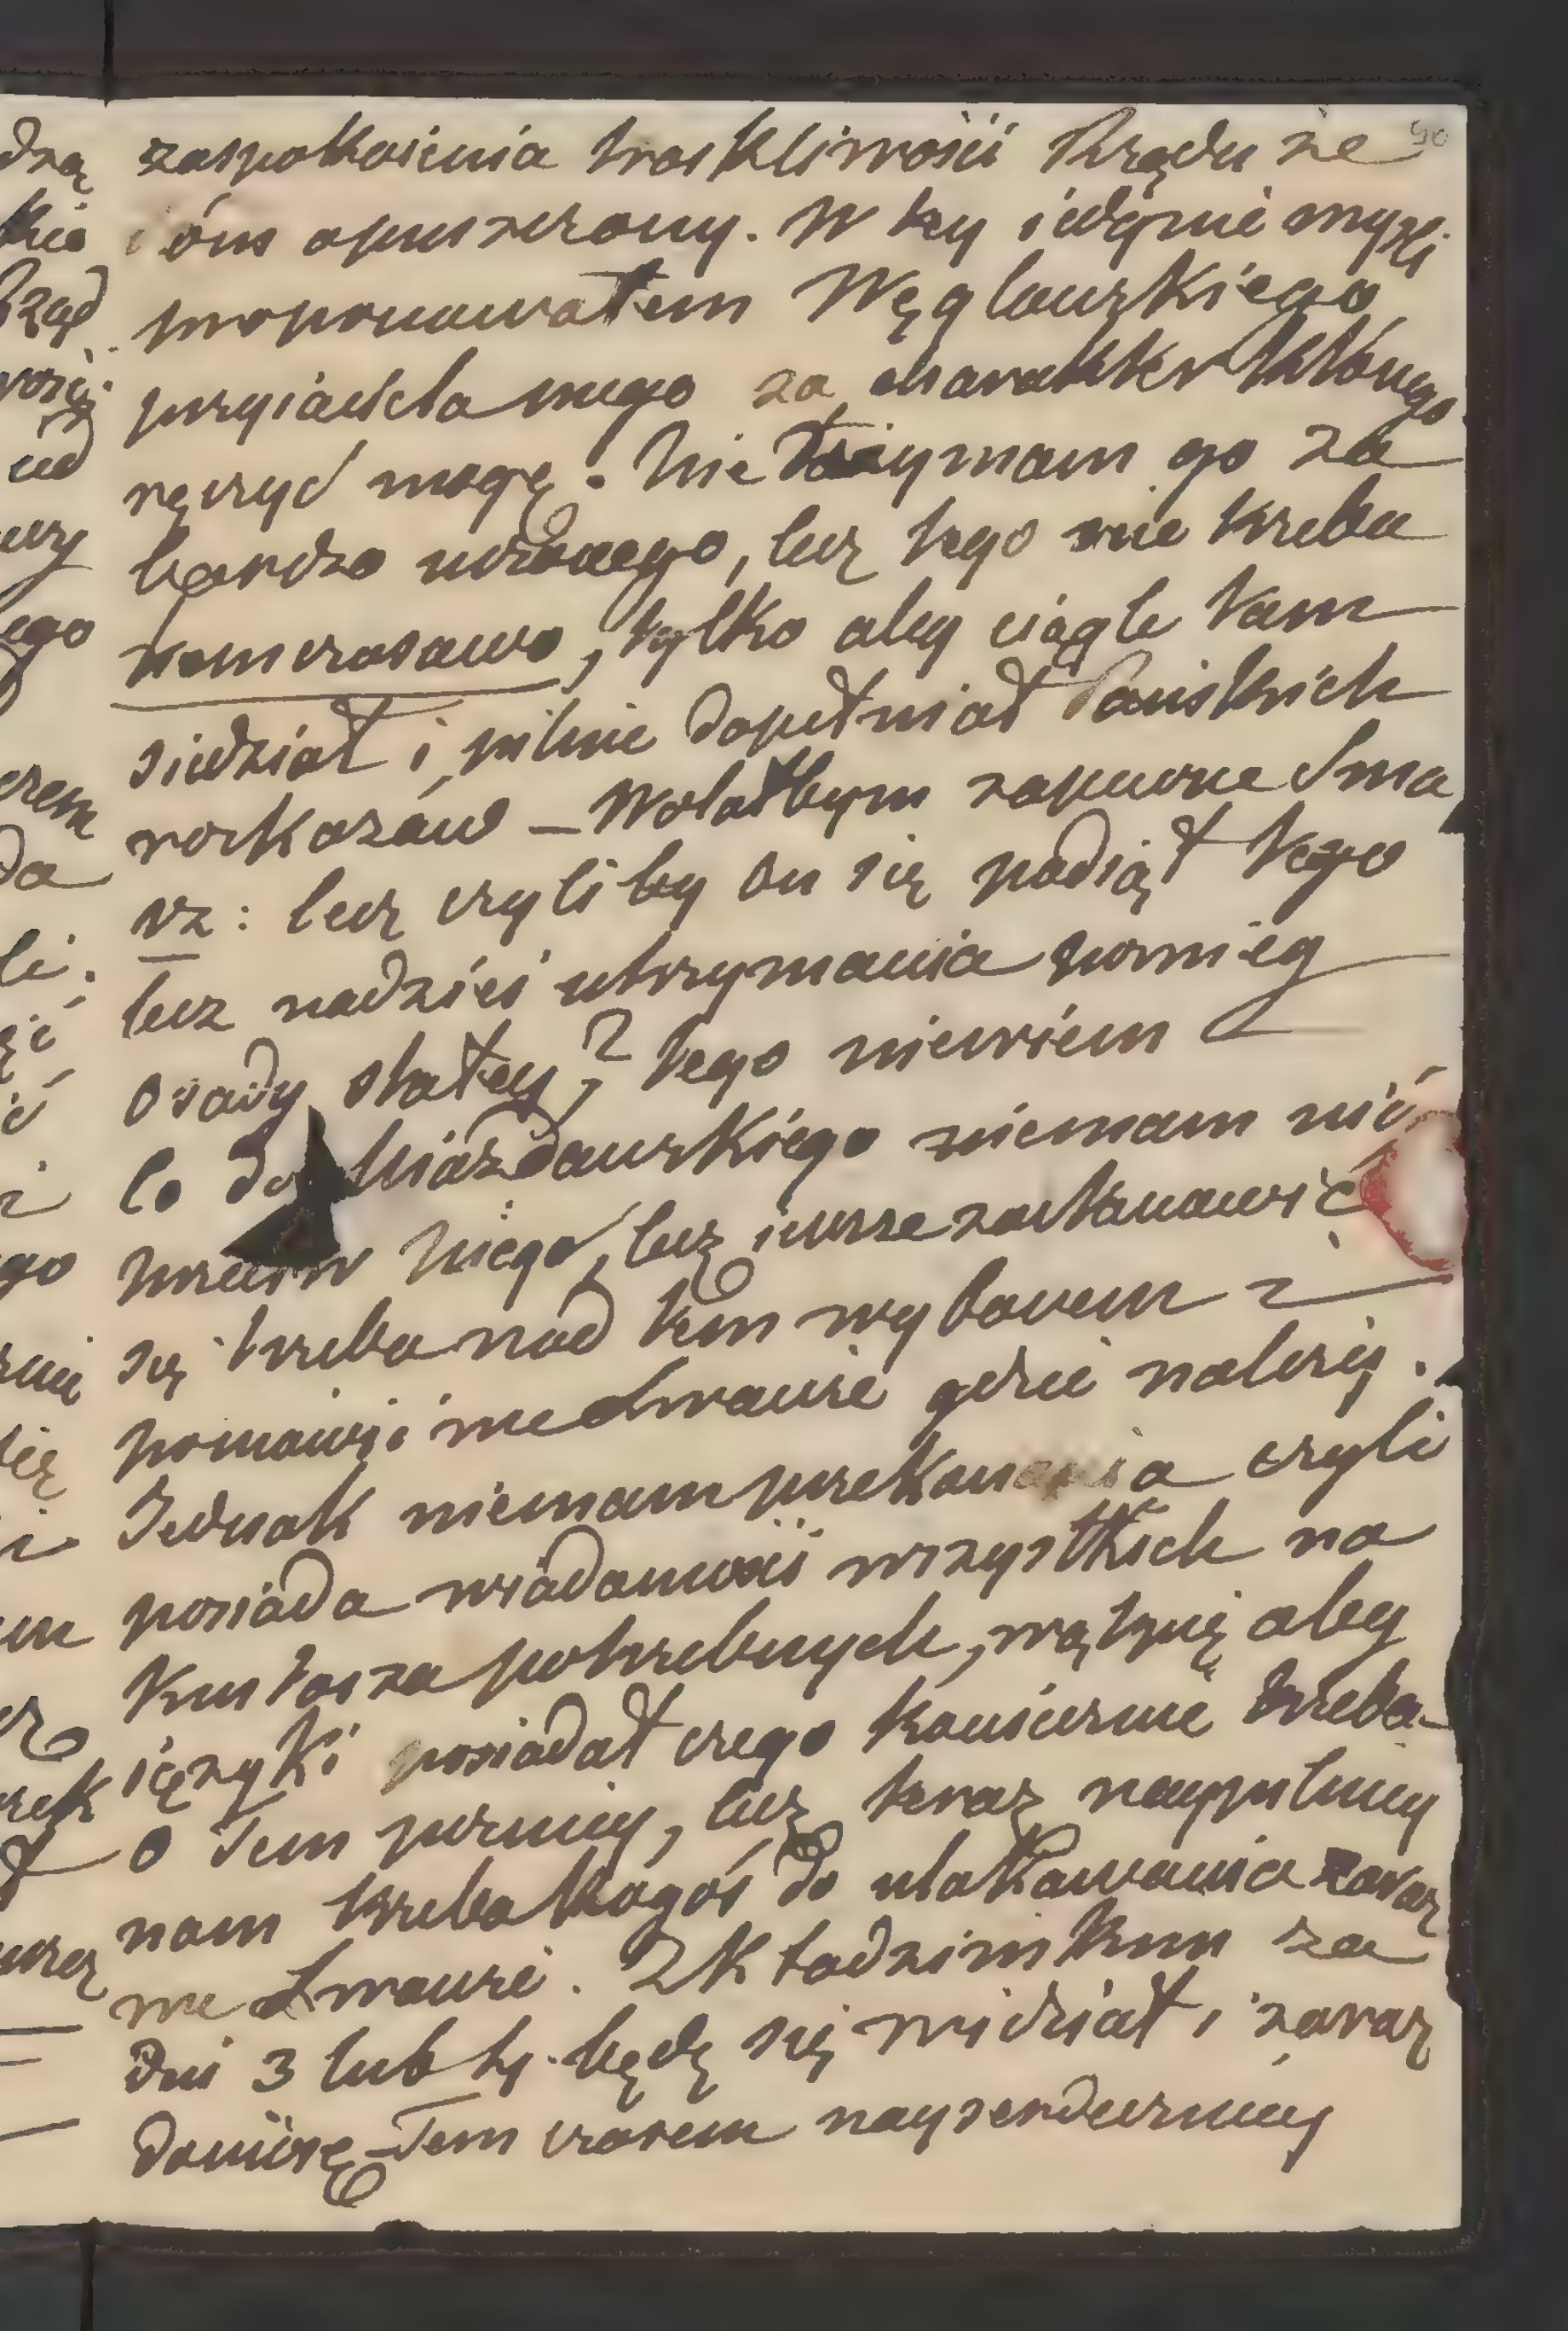 90
zaspokoienia troskliwości Rządu że
i óns opuszczony. W tey iedynie myśli
proponowałem Węglowskiego
przyiaciela mego za charakter którego
ręczyć mogę. Nie trzymam go za
bardzo uczonego, lecz tego nie trzeba
tomczasowo, tylko aby ciągle tam
siedział i pilnie dopełniał Pańskich
rozkazów – Wolałbym zapewne Sma
rz: lecz czyliby on się podiął tego
bez nadziei utrzymania pomieg
osady stałey? tego niewiem
Co do Niazdowskiego niemam nic
przeciw niego, lecz ieszcze zastanowić
się trzeba nad tem wyborem i
pomówić we Lwowie gdzie należy.
Jednak niemam przekonania czyli
posiada wiadomości wszystkich na
Kustosza potrzebnych, wątpię aby
ięzyki posiadał czego koniecznie trzeba
O tem pozniey, lecz teraz naypilniey
nam trzeba kogoś do ulokowania zaraz
we Lwowie. Z Kłodzinskim za
dni 3 lub 4. będę się widział i zaraz
doniosę – Tem czasem nayserdeczniey